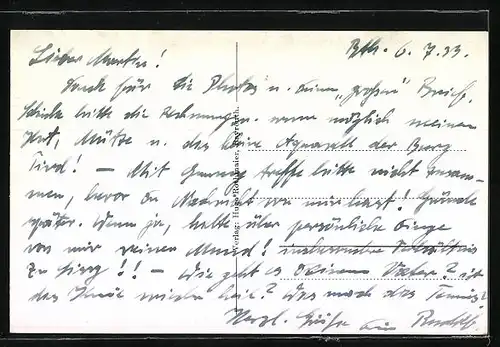 Bth. 6. 7. 33.
Lieber Martin!
Dank für die Photos u. Deinen „großen“ Brief.
Schicke bitte die Rechnungen, wenn möglich meinen
Hut, Mütze u. das kleine Aquarell der Burg
! — Mit treffe bitte nicht zusam-
men, bevor Du Nachricht von mir hast! Gründe
später. Wenn ja, halte über persönliche Dinge
von mir reinen Mund!
zu ! ! — Wie geht es Deinem Vater? Ist
das Knie wieder heil? Was macht das Tennis?
Herzl. Grüße Dein Rudolf.
Verlag: Hugo